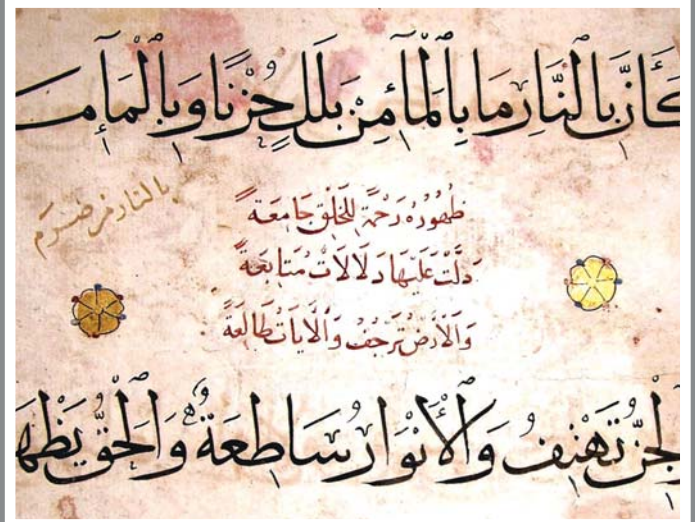 كَأَنَّ بِالنَّارِ مَا بِالْمَاءِ مِنْ بَلَلٍ حُزْنًا وَبِالْمَاءِ مَا
بالنار من ضرم
ظُهُورُهُ رَحْمَةٌ لِلْخَلْقِ جَامِعَةٌ
دَلَّتْ عَلَيْهَا دَلَالَاتٌ مُتَابِعَةٌ
وَالْأَرْضُ تَرْجُفُ وَالْآيَاتُ طَالِعَةٌ
وَالْجِنُّ تَهْتِفُ وَالْأَنْوَارُ سَاطِعَةٌ وَالْحَقُّ يَظْهَرُ